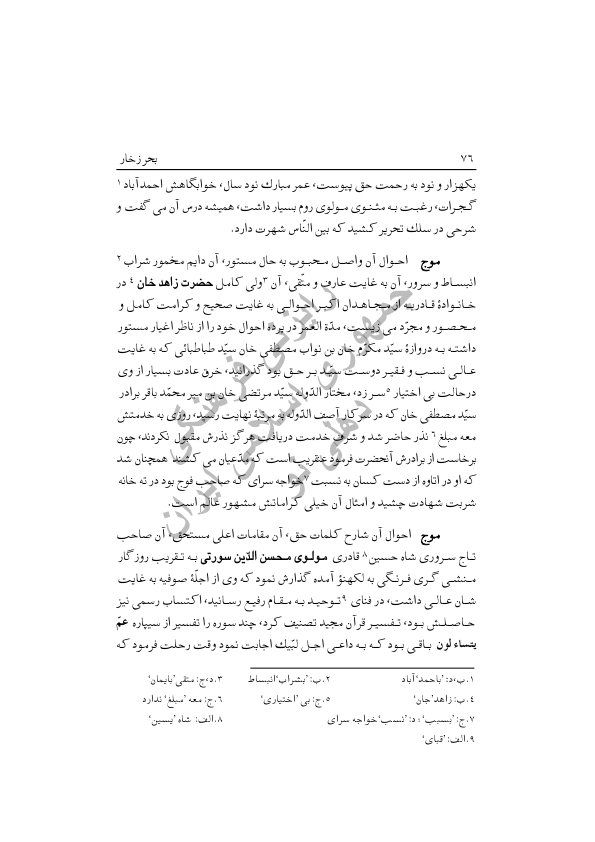 ۷۶ بحر زخار
یکهزار و نود به رحمت حق پیوست، عمر مبارك نود سال، خوابگاهش احمدآباد ۱
گجرات، رغبت به مثنوی مولوی روم بسیار داشت، همیشه درس آن می گفت و
شرحی در سلك تحریر کشید که بین النّاس شهرت دارد.
موج احوال آن واصل محبوب به حال مستور، آن دایم مخمور شراب ۲
انبساط و سرور، آن به غایت عارف و متّقی، آن ۳ ولی کامل حضرت زاهد خان ۴ در
خانوادۀ قادریه از مجاهدان اکبر احوالی به غایت صحیح و کرامت کامل و
محصور و مجرّد می زیست، مدّة العمر در پرده احوال خود را از ناظر اغیار مستور
داشته به دروازۀ سیّد مکرّم خان بن نواب مصطفی خان سیّد طباطبائی که به غایت
عالی نسب و فقیر دوست سیّد بر حق بود گذرانید، خرق عادت بسیار از وی
درحالت بی اختیار ۵ سر زد، مختار الدّوله سیّد مرتضی خان بن میر محمّد باقر برادر
سیّد مصطفی خان که در سرکار آصف الدّوله به مرتبۀ نهایت رسید، روزی به خدمتش
معه مبلغ ۶ نذر حاضر شد و شرف خدمت دریافت هرگز نذرش مقبول نکردند، چون
برخاست از برادرش آنحضرت فرمود عنقریب است که مدّعیان می کشند همچنان شد
که او در اتاوه از دست کسان به نسبت ۷ خواجه سرای که صاحب فوج بود در ته خانه
شربت شهادت چشید و امثال آن خیلی کراماتش مشهور عالم است.
موج احوال آن شارح کلمات حق، آن مقامات اعلی مستحق، آن صاحب
تاج سروری شاه حسین ۸ قادری مولوی محسن الدّین سورتی به تقریب روزگار
منشی گری فرنگی به لکهنؤ آمده گذارش نمود که وی از اجلّۀ صوفیه به غایت
شان عالی داشت، در فنای ۹ توحید به مقام رفیع رسانید، اکتساب رسمی نیز
حاصلش بود، تفسیر قرآن مجید تصنیف کرد، چند سوره را تفسیر از سیپاره عمّ
یتساءلون باقی بود که به داعی اجل لبّیك اجابت نمود وقت رحلت فرمود که
۱. ب، د: ’باحمد‘ آباد ۲. ب: ’بشراب‘ انبساط ۳. د، ج: متقی ’بایمان‘
۴. ب: زاهد ’جان‘ ۵. ج: بی ’اختیاری‘ ۶. ج: معه ’مبلغ‘ ندارد
۷. ج: ’بسبب‘؛ د: ’نسب‘ خواجه سرای ۸. الف: شاه ’یسین‘
۹. الف: ’قبای‘